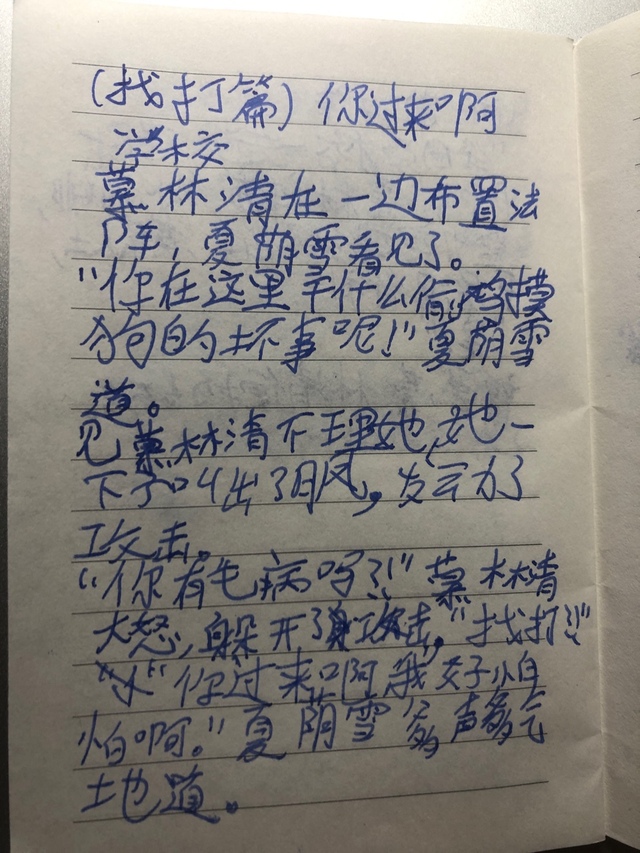 （找打篇）你过来啊
学校
慕林清在一边布置法
阵，夏荫雪看见了。
“你在这里干什么偷鸡摸
狗的坏事呢！”夏荫雪
道。
见慕林清不理她，她一
下子叫出了月风，发动了
攻击。
“你有毛病吗？！”慕林清
大怒，躲开了攻击，“找打！！”
“你过来啊我好怕
怕啊。”夏荫雪 声 气
地道。